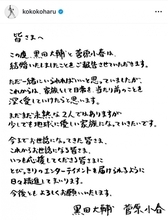 kokokoharu
皆さまへ
この度、黒田大輔と菅原小春は、
結婚いたしましたことをご報告させていただきます。
ただ一緒にいられればいいと思っていましたが、
これからは、家族として日常を送り前のことも
深く愛していけたらと思います。
まだまだ未熟な2人ではありますが
少しでも地球に優しい家族になっていきたいです。
今までお世話になってきた皆さま、
これからお世話になる皆さま、
いつも応援してくださる皆さまに
とびっきりのエンターテイメントを届けられるように
日々精進して参ります。
今後ともよろしくお願いいたします。
黒田大輔 菅原小春